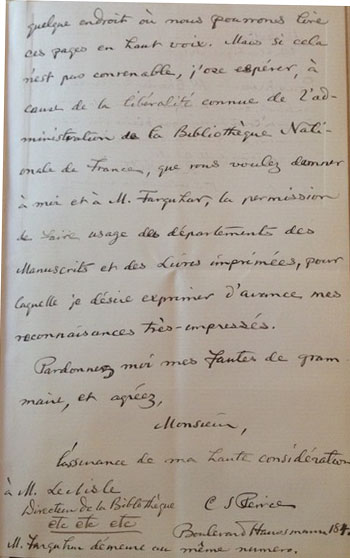 quelque endroit où nous pourrons lire
ces pages en haut voix. Mais si cela
n'est pas convenable, j'ose espérer, à
cause de la libéralité connue de l'ad-
ministration de la Bibliothèque Nati-
onale de France, que vous voulez donner
à moi et à M. Farquhar, la permission
de faire usage des départements des
Manuscrits et des Livres imprimées, pour
laquelle je désire exprimer d'avance mes
reconnaisances très-impressés.
Pardonnez moi mes fautes de gram-
maire, et agréez,
Monsieur,
l'assurance de ma haute considération
à M. Leslisle
Directeur de la Bibliothèque
etc etc etc
C S Peirce
Boulevard Haussmann
M. Farquhar demeure au même numéro.